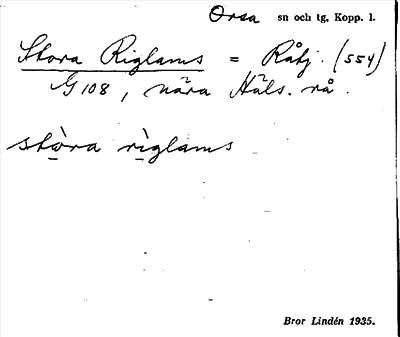 Orsa sn och tg. Kopp. l.
Stora Riglams = Råtj. (554)
G 108, nära Häls. rå.
stòra rìglams
Bror Lindén 1935.